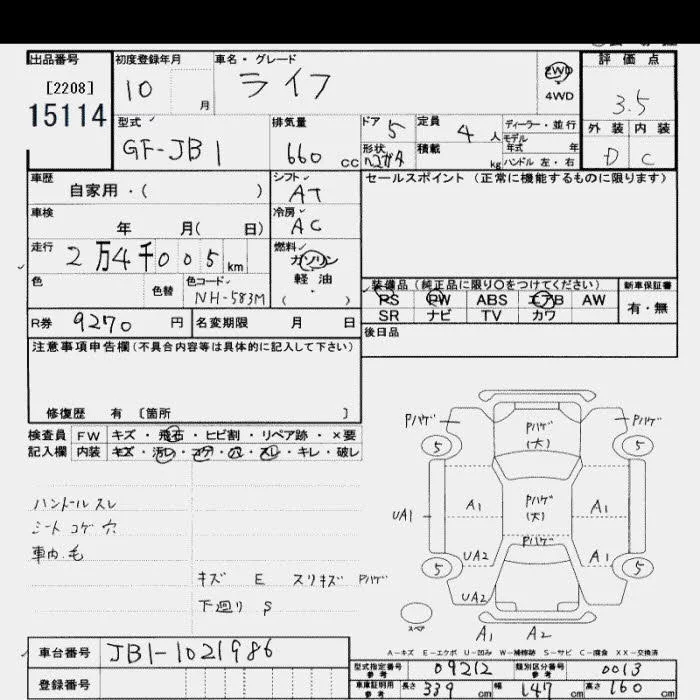 出品番号 初度登録年月 車名・グレード 評価点
[2208] 10 月 ライフ 2WD 4WD 3.5
15114 型式 排気量 ドア 5 定員 4 人 ディーラー・並行 外装 内装
GF-JB1 660 cc 形状 積載 kg モデル 年式 年 D C
ハンドル 左・右
車歴 シフト セールスポイント(正常に機能するものに限ります)
自家用・( ) AT
車検 冷房
年 月( 日) AC
走行 燃料
2万4千005km ガソリン
色 色替 色コード 軽油 装備品(純正品に限り○をつけてください) 新車保証書
NH-583M ( ) PS PW ABS エアB AW 有・無
SR ナビ TV カワ
R券 9270 円 名変期限 月 日 後日品
注意事項申告欄(不具合内容等は具体的に記入して下さい)
修復歴 有 〔箇所 〕
検査員 FW キズ・飛石・ヒビ割・リペア跡・×要
記入欄 内装 キズ・汚レ・コゲ・穴・スレ・キレ・破レ
ハンドル スレ
シート コゲ 穴
車内.毛
キズ E スリキズ Pハゲ
下廻り S
Pハゲ Pハゲ (大) Pハゲ
5 5
UA1 A1 Pハゲ (大) A1
Pハゲ
UA2 A1
5 5
UA2
スペア A1 A2
A-キズ E-エクボ U-凹み W-補修跡 S-サビ C-腐食 XX-交換済
車台番号 JB1-1021986
型式指定番号 参考 09212 類別区分番号 参考 0013
登録番号 車庫証明用 参考 長さ 339 cm 幅 147 cm 高さ 160 cm